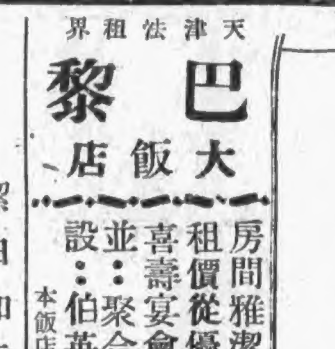 天津法租界
巴黎
大飯店
房間雅潔
租價從優
喜壽宴會
並：聚會
設：伯英
本飯店